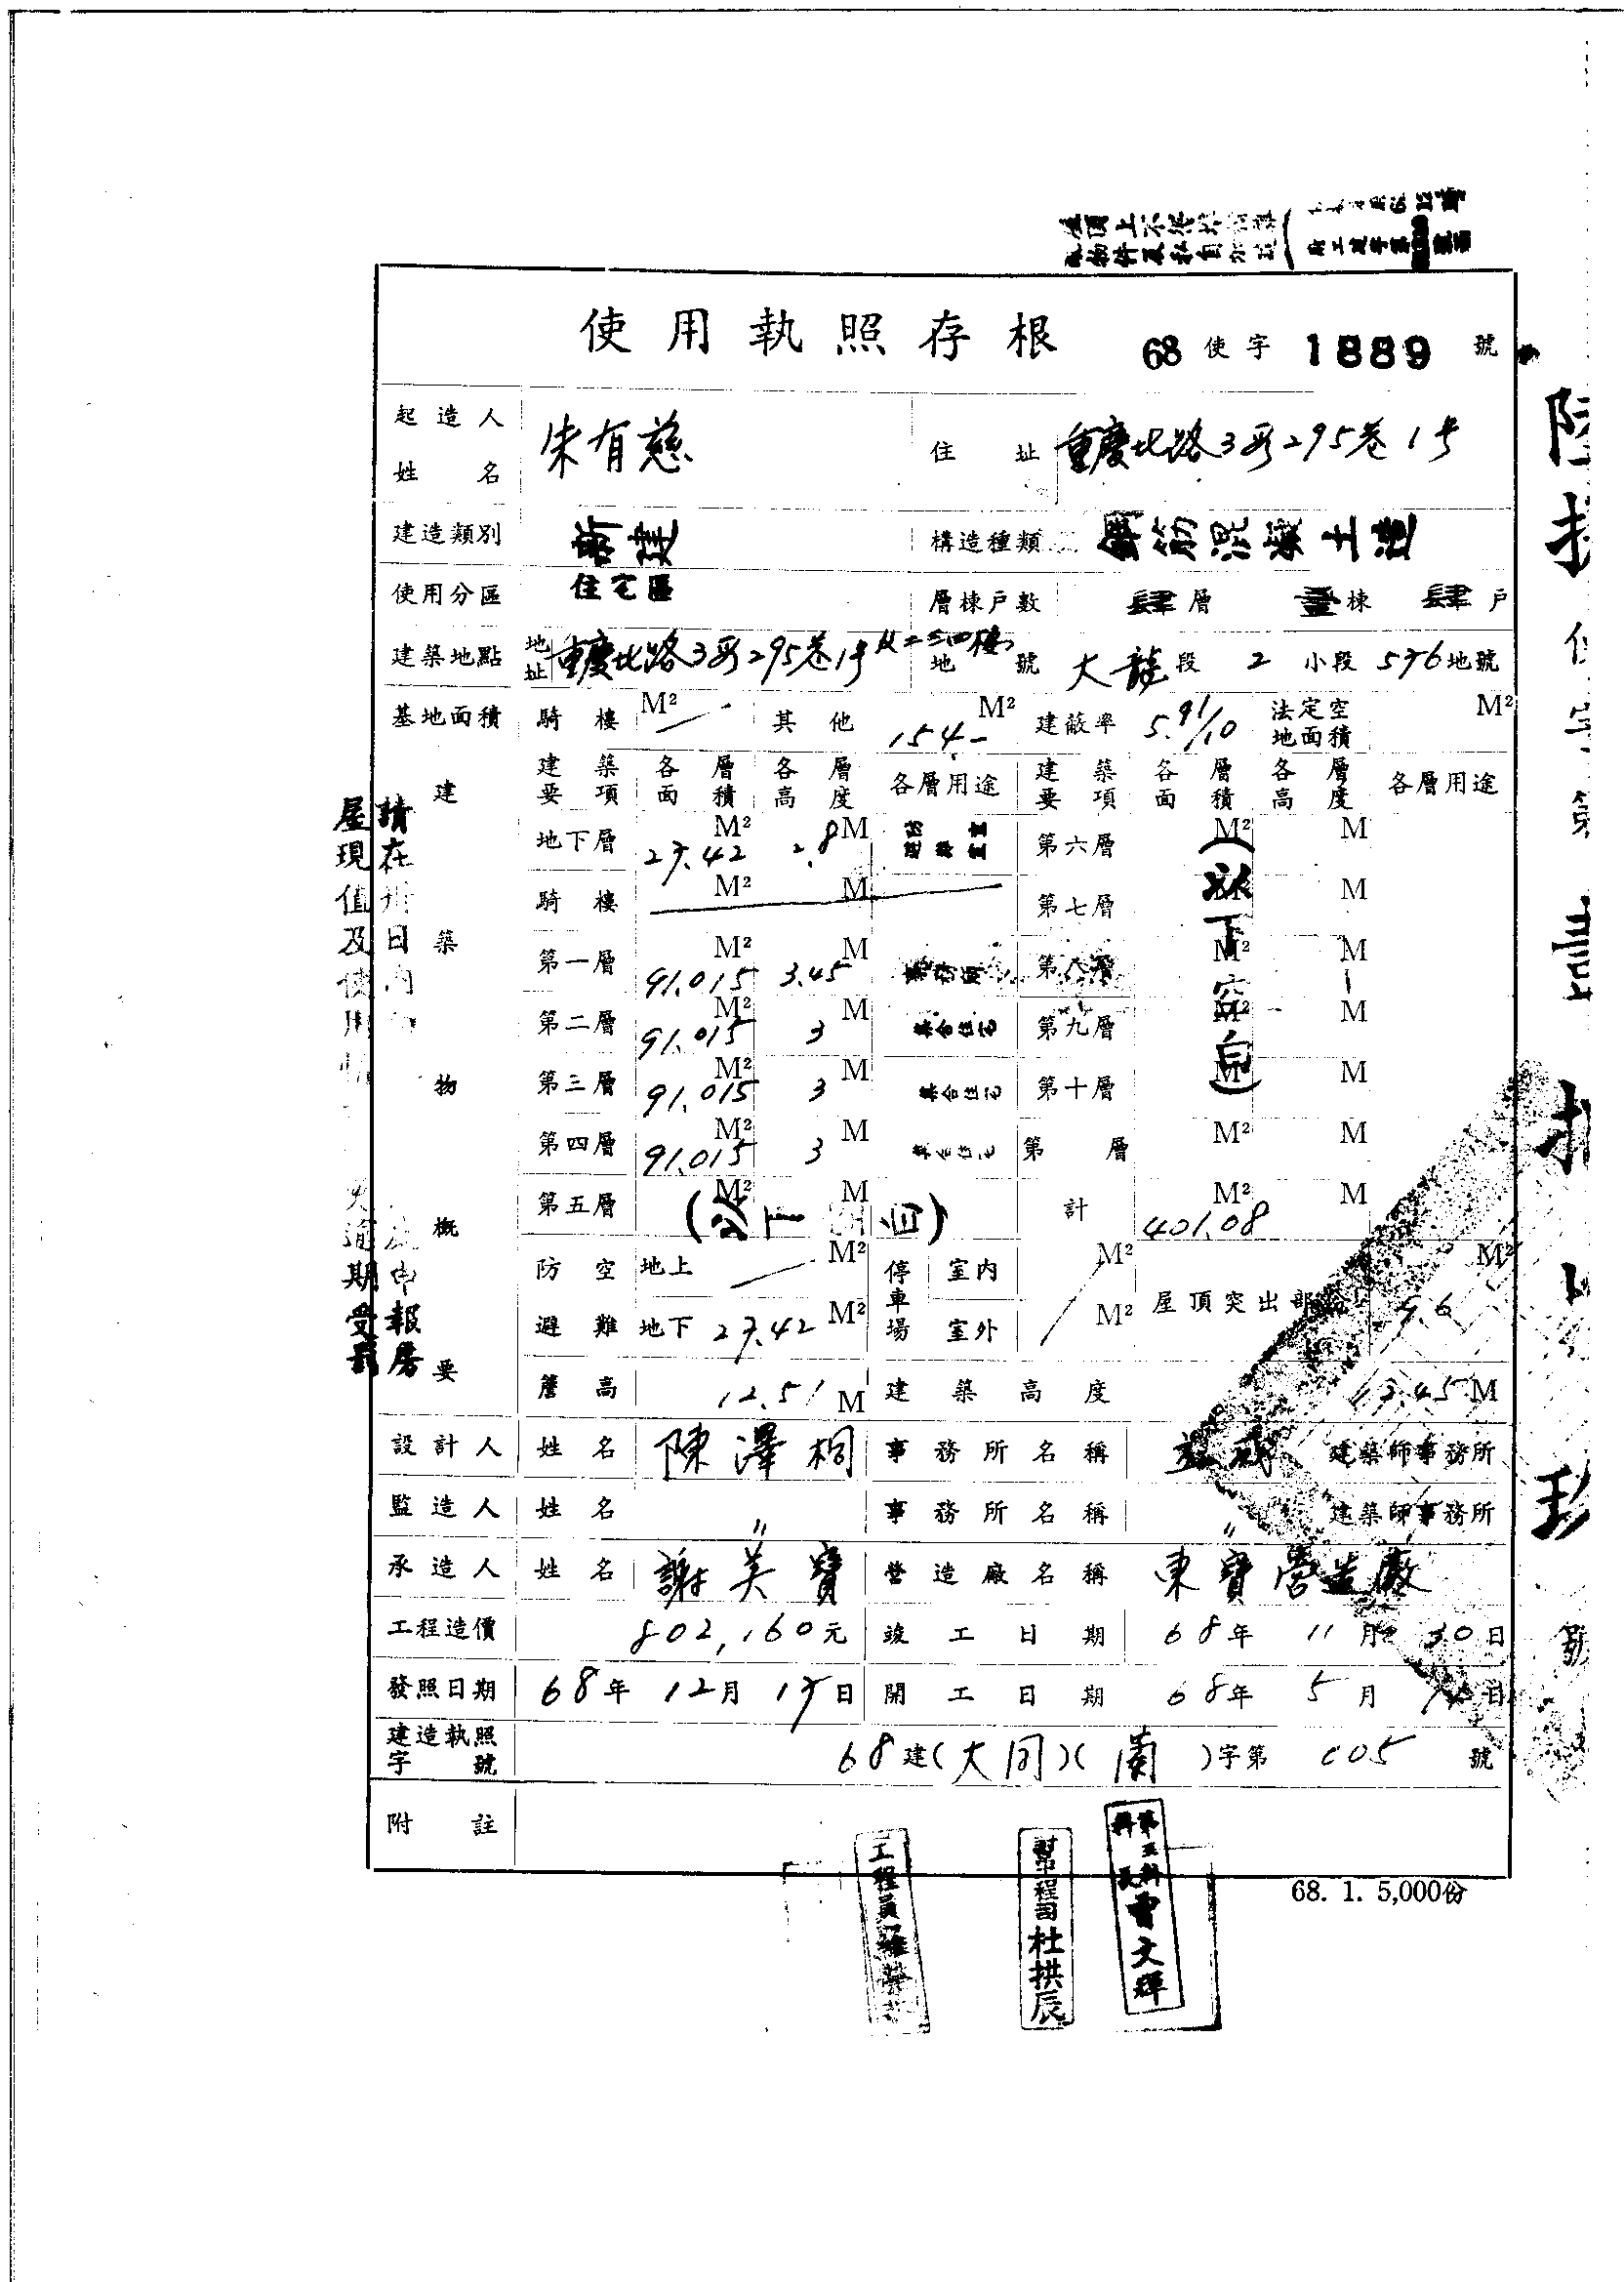 使用執照存根 68使字1889號
起造人姓名 朱有慈 住址 重慶北路3段295巷1号
建造類別 新建 構造種類 鋼筋混凝土造
使用分區 住宅區 層棟戶數 肆層 壹棟 肆戶
建築地點 地址 重慶北路3段295巷1号 地號 大龍段 2小段 576地號
基地面積 騎樓 M² 其他 154- M² 建蔽率 5.91/10 法定空地面積 M²
建築物概要
建築要項 各層面積 各層高度 各層用途 建築要項 各層面積 各層高度 各層用途
地下層 27.42 M² 2.8 M 第六層 M² M
騎樓 M² M 第七層 M² M
第一層 91.015 M² 3.45 M 第八層 M² M
第二層 91.015 M² 3 M 集合住宅 第九層 M² M
第三層 91.015 M² 3 M 集合住宅 第十層 M² M
第四層 91.015 M² 3 M 集合住宅 第 層 M² M
(以下空白)
第五層 M² M 計 401.08 M² M
(以下空白)
防空避難 地上 M² 停車場 室內 M² 屋頂突出部 M²
地下 27.42 M² 室外 M²
簷高 12.51 M 建築高度 M
設計人 姓名 陳澤桐 事務所名稱 建築師事務所
監造人 姓名 〃 事務所名稱 〃 建築師事務所
承造人 姓名 謝美寶 營造廠名稱 東寶營造廠
工程造價 802,160元 竣工日期 68年11月30日
發照日期 68年12月17日 開工日期 68年5月 日
建造執照字號 68建(大同)( )字第005號
附註
68. 1. 5,000份
工程員
幫工程司杜拱辰
第三科科長曹文輝